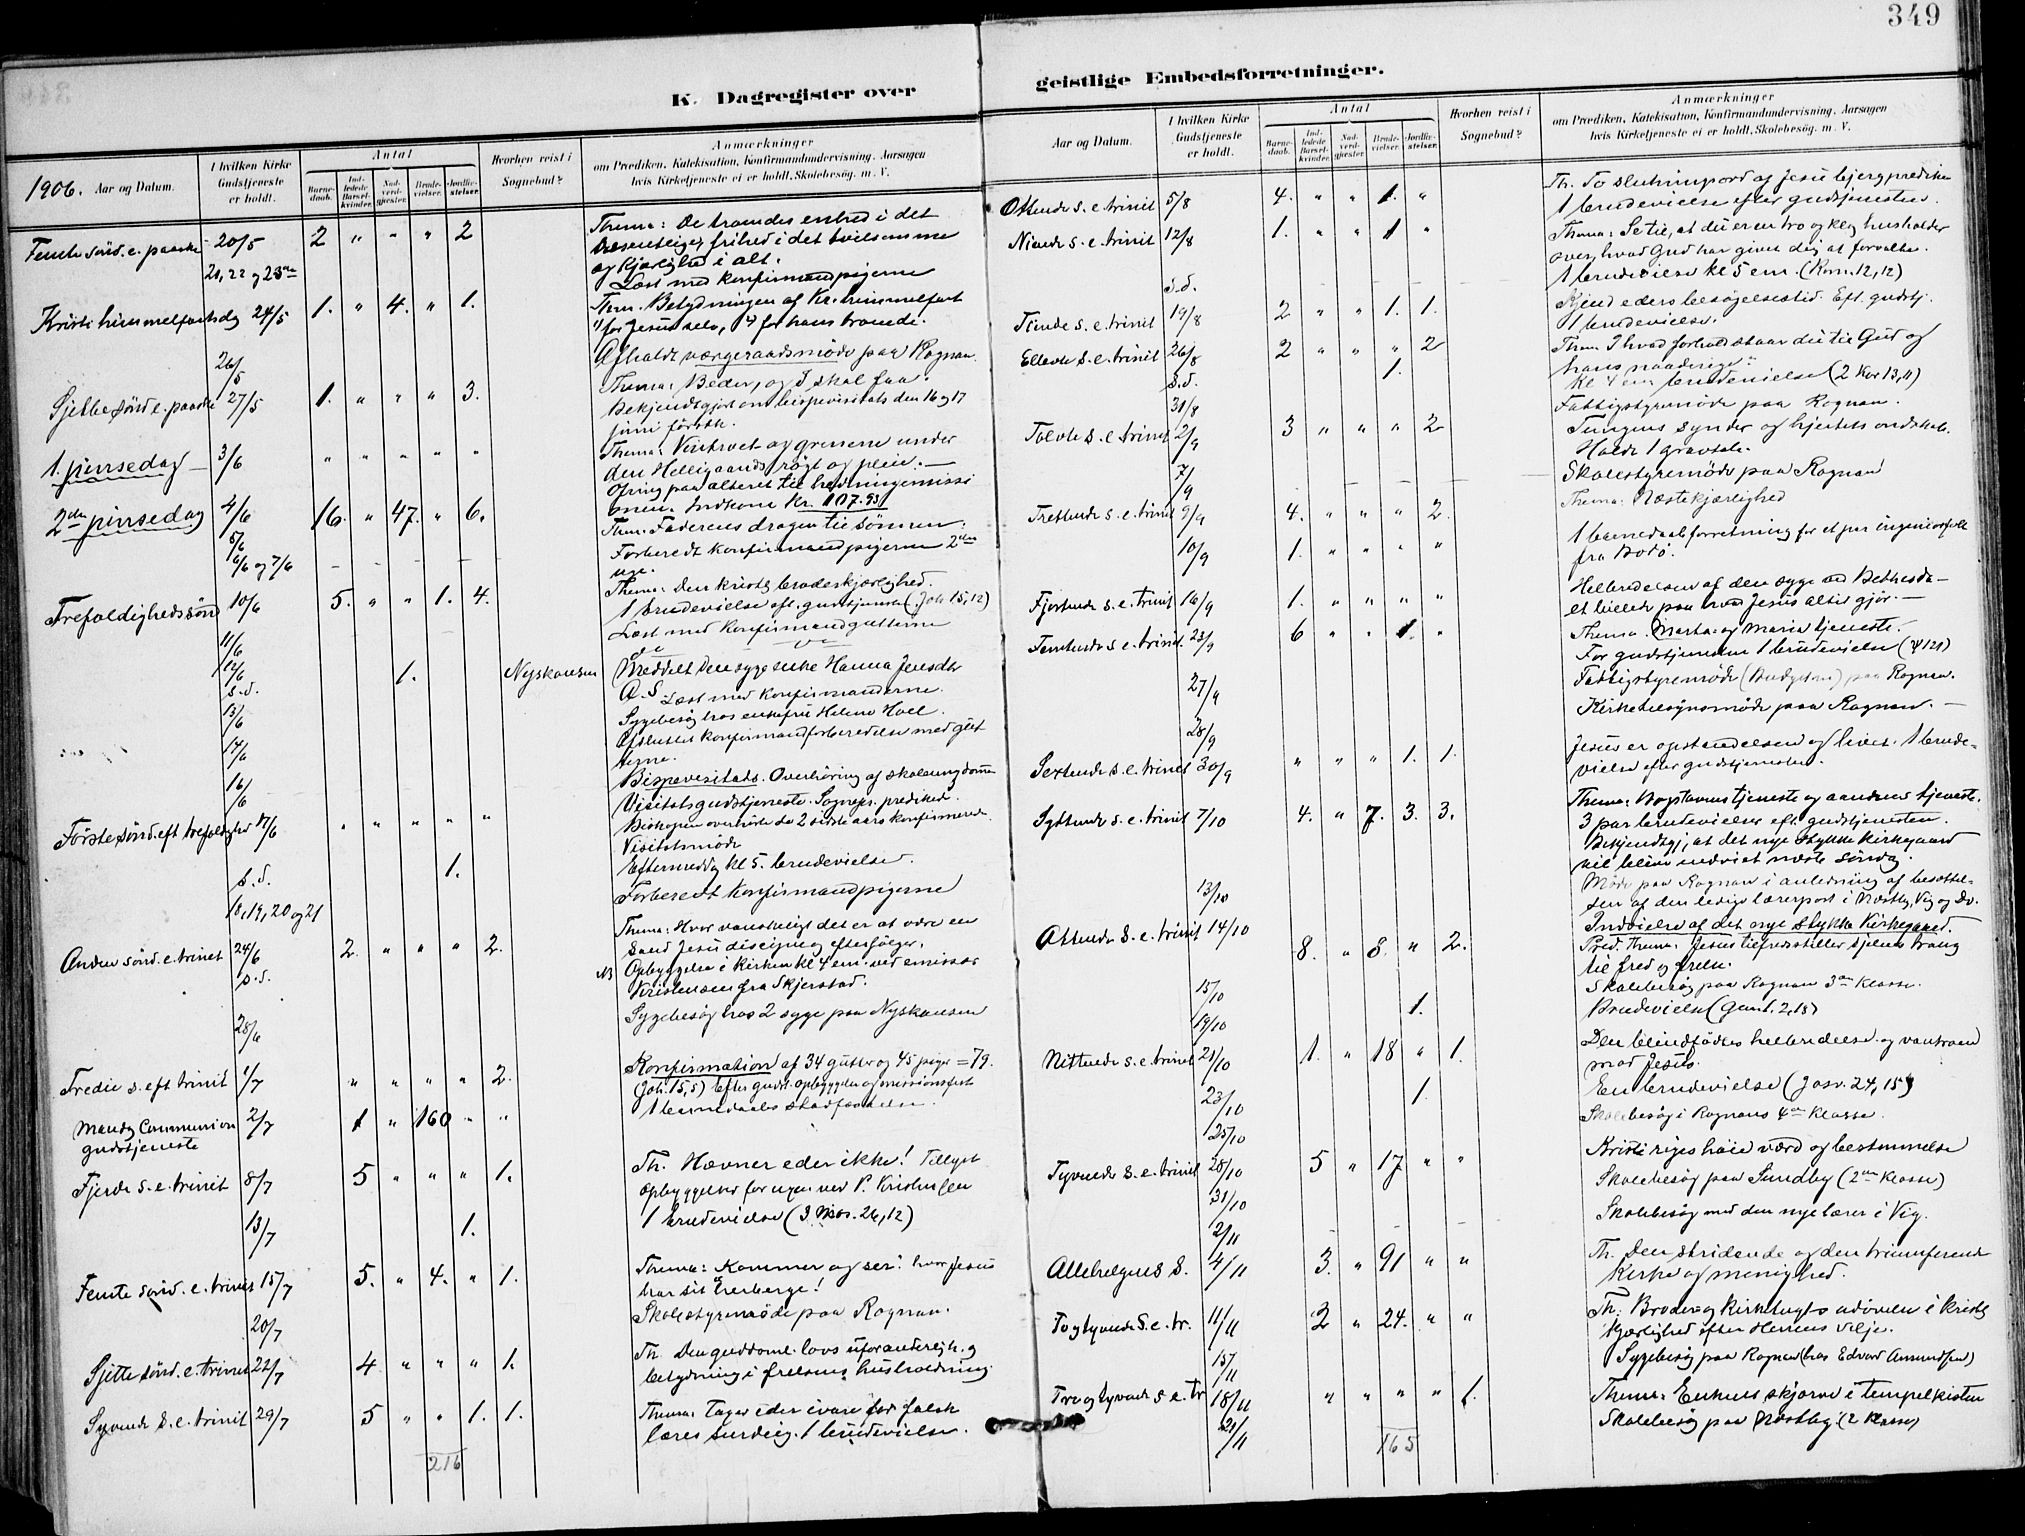 349
K. Dagregister over
1906. Aar og Datum.
I hvilken Kirke Gudstjeneste er holdt.
Antal
Barnedaab.
Indledede Barselkvinder.
Nadverdgjester.
Brudevielser.
Jordfæstelser.
Hvorhen reist i Sognebud?
Anmærkninger
om Prædiken, Katekisation, Konfirmandundervisning, Aarsagen
hvis Kirketjeneste ei er holdt, Skolebesög. m. V.
Femte sönd. e. paaske 20/5 2 " " " 2 Thema: De troendes enhed i det
væsentlige, frihed i det tvilsomme
og kjærlighed i alt.
21, 22 og 23de Læst med konfirmandpigerne
Kristi himmelfartsdg 24/5 1. " 4. " 1. Them. Betydningen af Kr. himmelfart
1) for Jesus selv, 2) for hans troende.
26/5 Afholdt værgeraadsmöde paa Rognan.
Sjette sönd e. paaske 27/5 1. " " " 3. Thema: Beder, og I skal faa.
Bekjendtgjort om bispevisitats den 16 og 17
juni förstk.
1. pinsedag 3/6 " " " " " Thema: Vintræet og grenene under
den Helligaands røgt og pleie.
Ofring paa alteret til hedningemissi
onen. Indkom Kr. 107.93
2den pinsedag 4/6 16. " 47. " 6. Them. Faderens dragen til sönnen.
5/6 6/6 og 7/6 Forberedt konfirmandpigerne 2den
uge.
Trefoldighedssönd 10/6 5. " " 1. 4. Thema: Den kristelg broderkjærlighed.
1 brudevielse eft. gudstjeneste (Joh 15,12)
11/6 Læst med konfirmandgutterne
12/6 1. Nyskausen Meddelt den syge enke Hanna Jensdtr
A. S.
s.d. Læst med konfirmanderne.
13/6 Sygebesög hos enkefru Helene Hoel.
14/6 Afsluttet konfirmandforberedelse med gut
terne.
16/6 Bispevisitats. Overhöring af skoleungdomm
Förste sönd. eft trefoldighd 17/6 " " " " " Visitatsgudstjeneste. Sognepr. prediked.
Biskopen overhörte de 2 sidste aars konfirmerede.
Visitatsmöde
s.d. 1. Eftermiddag kl 5. brudevielse.
18, 19, 20 og 21 Forberedt konfirmandpigerne
Anden sönd. e. trinit 24/6 2 " " " 2. Thema: Hvor vanskeligt det er at være en
sand Jesu discipel og efterfölger.
s.d. NB Opbyggelse i kirken kl 4 em. ved emissær
Kristensen fra Skjerstad.
28/6 Sygebesög hos 2 syge paa Nyskausen
Tredie s. eft trinit 1/7 " " " " 2. Konfirmation af 34 gutter og 45 piger = 79.
(Joh. 15,5) Efter gudst. opbyggelse og missionsfest
1 barnedaabs stadfæstelse.
Mandg Communion
gudstjeneste 2/7 1 " 160 " "
Fjerde s. e. trinit 8/7 5 " " " 1. Th. Hævner eder ikke! Tillyst
opbyggelser for ugen ved P. Kristensen
13/7 1. 1 brudevielse (3 Mos. 26,12)
Femte sönd. e. trinit 15/7 5. " 4. " 1. Thema: Kommer og ser: hvor Jesus
har sit herberge!
20/7 Skolestyremöde paa Rognan.
Sjette sönd. e. trinit 22/7 4 " " " 1. Th. Den guddoml. lovs uforanderligh. og
betydning i frelsens husholdning.
Syvende s. e. trinit 29/7 5 " " 1. 1. Thema: Tager eder ivare for falsk
læres surdeig. 1 brudevielse.
216
geistlige Embedsforretninger.
Aar og Datum.
I hvilken Kirke Gudstjeneste er holdt.
Antal
Barnedaab.
Indledede Barselkvinder.
Nadverdgjester.
Brudevielser.
Jordfæstelser.
Hvorhen reist i Sognebud?
Anmærkninger
om Prædiken, Katekisation, Konfirmandundervisning, Aarsagen
hvis Kirketjeneste ei er holdt, Skolebesög. m. V.
Ottende s. e. trinit 5/8 4. " " 1. " Th. To slutningsord af Jesu bjergprediken
1 brudevielse efter gudstjenesten.
Niende s. e. trinit 12/8 1. " " 1 " Thema: Se til, at du er en tro og klog husholder
over, hvad Gud har given dig at forvalte.
s.d. 1 brudevielse kl 5 em. (Rom. 12,12)
Tiende s. e. trinit 19/8 2 " " 1. 1. Kjend eders besögelsestid. Eft. gudstj.
1 brudevielse.
Ellevte s. e. trinit 26/8 2 " " " 2 Them. I hvad forhold staar du til Gud og
hans naaderige"
s.d. 1. kl 4 em brudevielse (2 Kor 13,11)
31/8 Fattigstyremöde paa Rognan.
Tolvte s. e. trinit 2/9 3 " " " 2 Tungens synder og hjertets ondskab.
Holdt 1 gravtale.
7/9 Skolestyremöde paa Rognan
Trettende s. e. trinit 9/9 4. " " " 2. Thema: Næstekjærlighed
10/9 1. " " " " 1 barnedaabsforretning for et par ingeniörfolk
fra Bodö.
Fjortende s. e. trinit 16/9 1. " " " " Helbredelsen af den syge ved Bethesda -
et billede paa hvad Jesus altid gjör.
Femtende s. e. trinit. 23/9 6 " " 1. " Thema. Martas og Marias tjeneste.
For gudstjenesten 1 brudevielse (ψ 121)
27/9 Fattigstyremöde (Budgettet) paa Rognan.
28/9 Kirketilsynsmöde paa Rognan.
Sextende s. e. trinit 30/9 " " " 1. 1. Jesus er opstandelsen og livet. 1 brude-
vielse efter gudstjenesten.
Syttende s. e. trinit 7/10 4. " 7. 3. 3. Thema: Bogstavens tjeneste og aandens tjeneste.
3 par brudevielser eft. gudstjenesten.
Bekjendtgj. at det nye stykke kirkegaard
vil blive indviet næste söndag.
13/10 Möde paa Rognan i anledning af besættel-
sen af den ledige lærerpost i Næstby, Vig og Dv.
Attende s. e. trinit 14/10 8. " 8. " 2. Indvielse af det nye stykke kirkegaard.
Pred. Thema: Jesus tilfredsstiller sjelens trang
til fred og frelse.
15/10 Skolebesög paa Rognan 3die klasse.
19/10 1. Brudevielse (Sams. 2,15)
Nittende s. e. trinit 21/10 1. " 18 " 1. Den blindfödtes helbredelse og vantroen
mod Jesus.
23/10 1. En brudevielse (Josv. 24,15)
25/10 Skolebesög i Rognans 4de klasse.
Tyvende s. e. trinit 28/10 5 " 17 " " Kristi riges höie værd og bestemmelse
31/10 Skolebesög paa Sundby (2den klasse)
2/11 Skolebesög med den nye lærer i Vig.
Allehelgens s. 4/11 3. " 91 " " Th. Den stridende og den triumferende
kirke og menighed.
To og tyvende S. e. tr. 11/11 2 " 24. " " Th: Broder og Kirketugts udövelse i kristelg
kjærlighed efter Herrens vilje.
15/11 Sygebesög paa Rognan (hos Edvard Amundsen)
Tre og tyvende s e. tr 18/11 " " " " 1. Thema: Enkens skjærv i tempelkisten
21/11 Skolebesög paa Næstby (2 klasser)
165